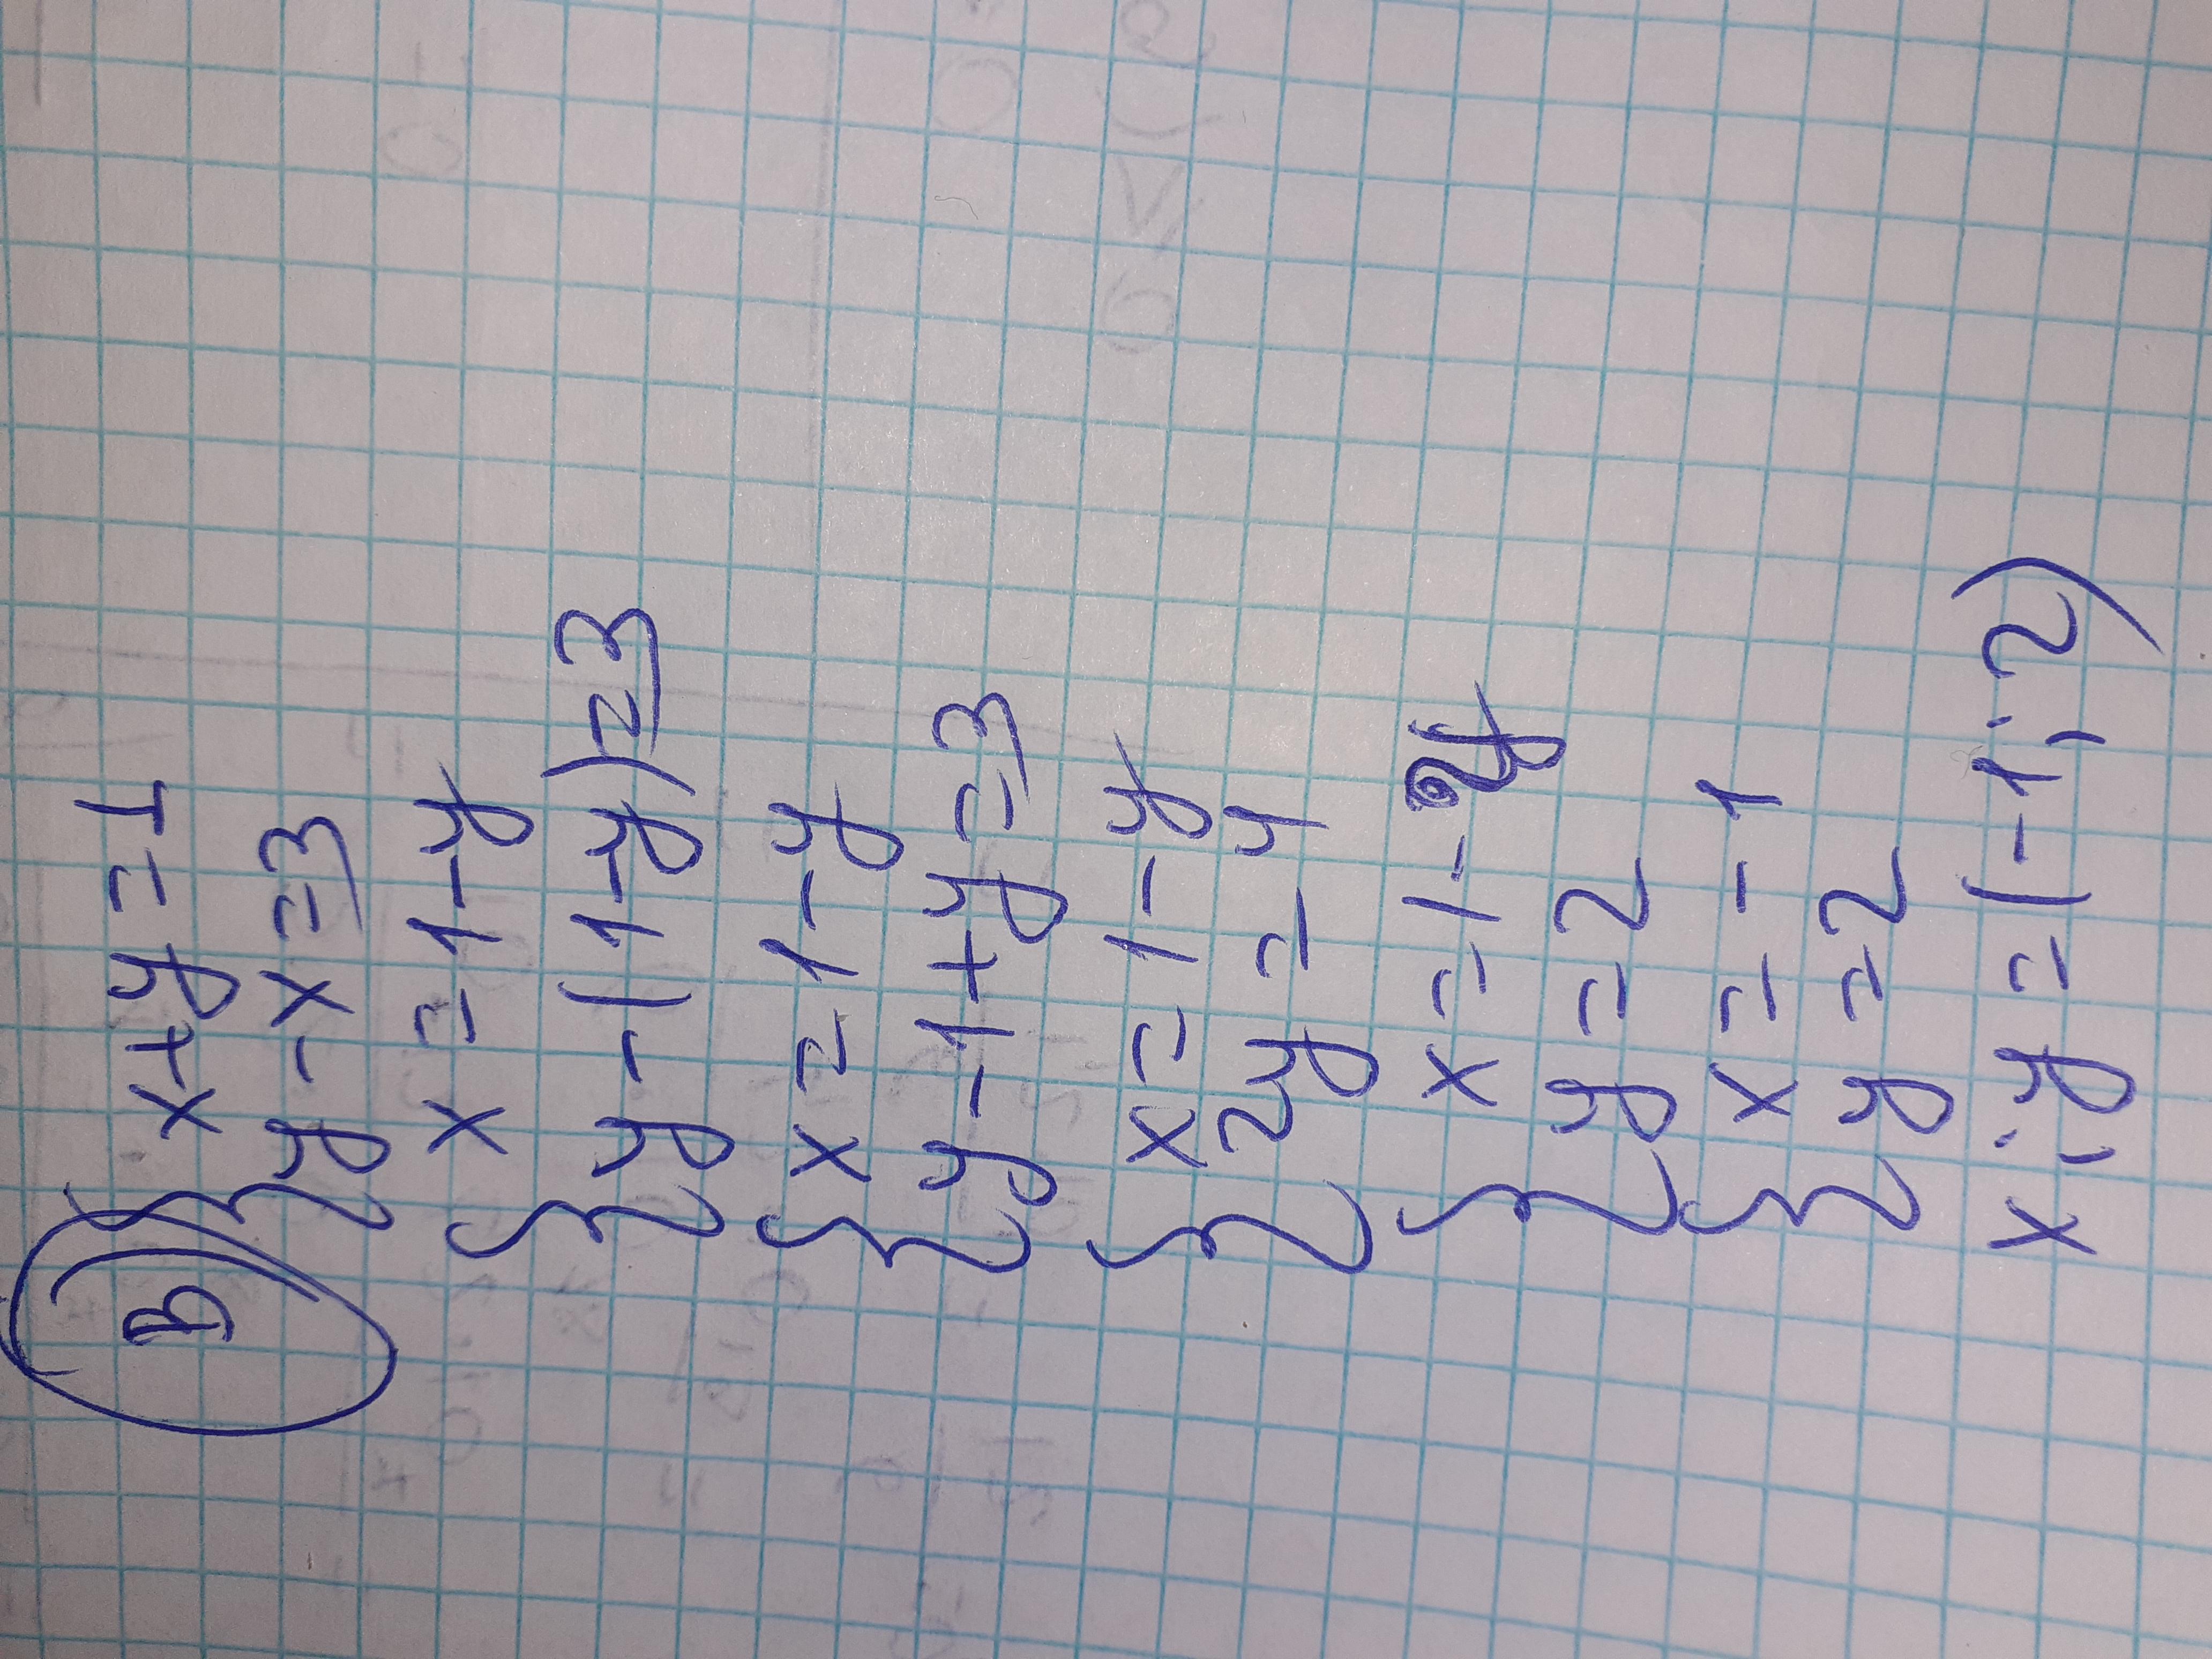 3
x+y=1
y-x=3
x=1-y
y-(1-y)=3
x=1-y
y-1+y=3
x=1-y
2y=4
x=1-y
y=2
x=-1
y=2
x;y=(-1;2)